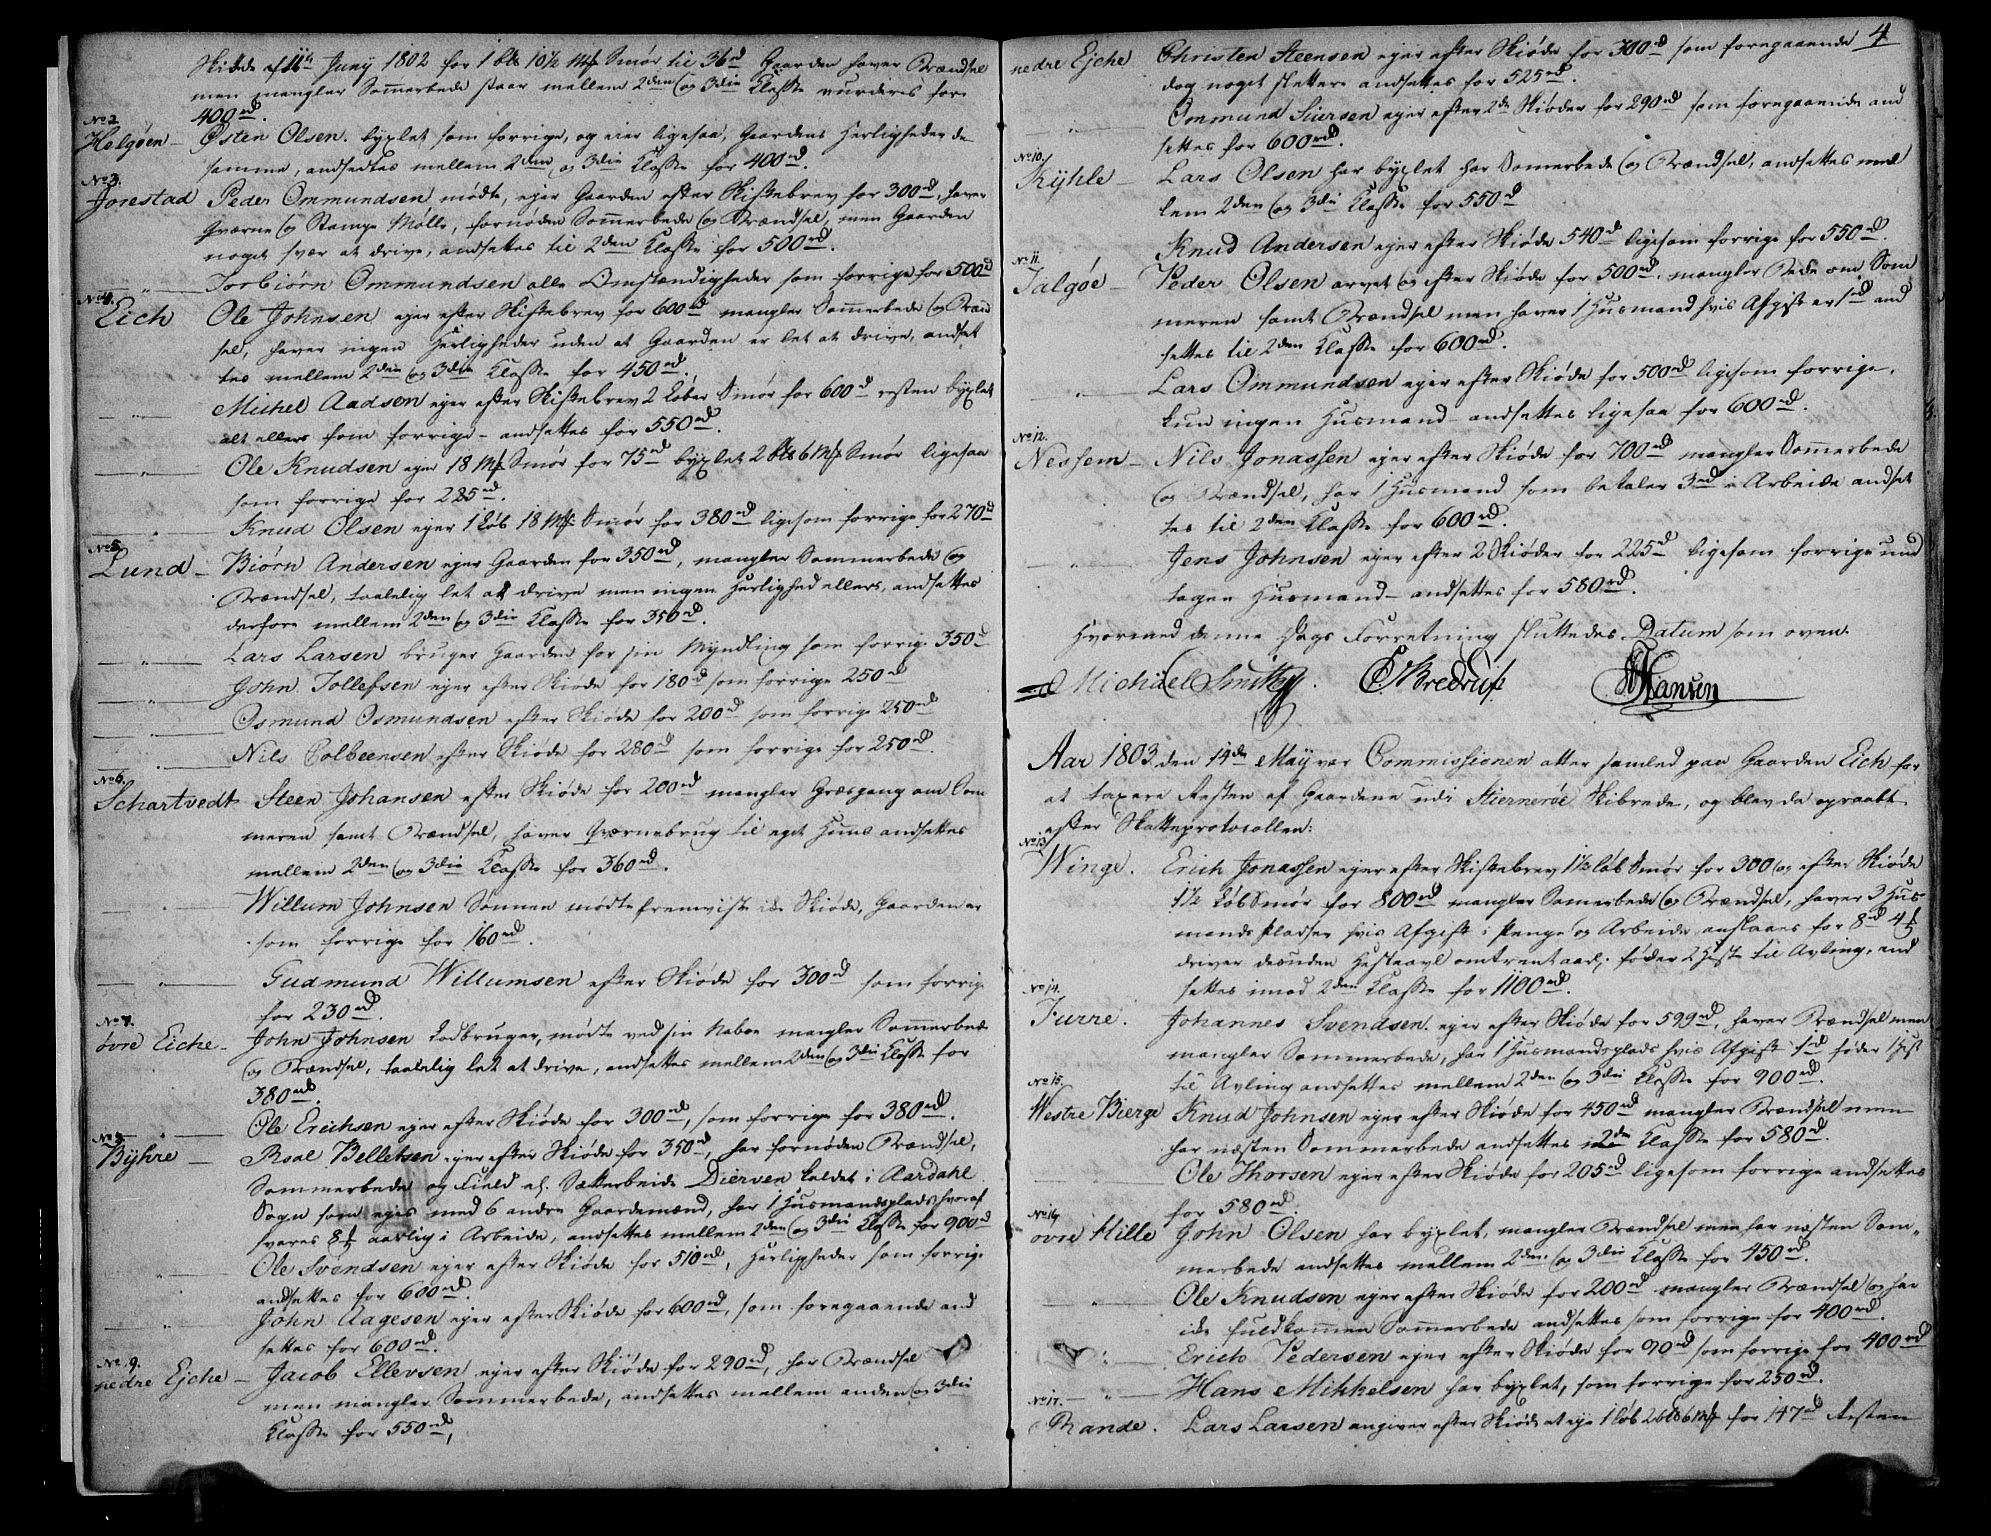 Skiøde af 11te Juny 1802 for 1 bls 10½ Mk Smør til 36rd Gaarden haver Brændsel
men mangler Sommerbede staar mellem 2den og 3die Klasse vurderes for
400rd.
No 2.
Helgøen - Østen Olsen. byxlet som forrige, og eier ligesaa, Gaardens Herligheder de
samme, andsettes mellem 2den og 3die Klasse for 400rd.
No 3.
Jorestad Peder Ommundsen mødte, ejer Gaarden efter Skiftebrev for 300rd, haver
Qværne og Stampe Mølle, fornøden Sommerbede og Brændsel, men Gaarden
noget svær at drive, andsettes til 2den Klasse for 500rd.
" Torbiørn Ommundsen alle Omstændigheder som forrige for 500rd
No 4.
Eich Ole Johnsen ejer efter Skiftebrev for 600rd mangler Sommerbede og Brænd
sel, haver ingen Herligheder uden at Gaarden er let at drive, andset
tes mellem 2den og 3die Klasse for 450rd.
" Michel Aadsen ejer efter Skiftebrev 2 Løber Smør for 600rd resten byxlet
alt ellers som forrige - andsettes for 550rd.
" Ole Knudsen ejer 18 Mk Smør for 75rd byxlet 2 bls 6 Mk Smør ligesaa
som forrige for 225rd.
" Knud Olsen ejer 1 Løb 18 Mk Smør for 380rd ligesom forrige for 270rd
No 5.
Lund - Biørn Andersen ejer Gaarden for 350rd, mangler Sommerbede og
Brændsel, taalelig let at drive men ingen Herlighed ellers, andsettes
derfore mellem 2den og 3die Klasse for 350rd.
" Lars Larsen bruger Gaarden for sin Myndling som forrige 350rd
John Tollefsen ejer efter Skiøde for 180rd som forrige 250rd
" Osmund Osmundsen efter Skiøde for 200rd som forrige 250rd
" Nils Colbeensen efter Skiøde for 280rd som forrige for 250rd.
No 6.
Schartvedt Steen Johansen efter Skiøde for 200rd mangler Græsgang om Som
meren samt Brændsel, haver Qværnebrug til eget Huus andsettes
mellem 2den og 3die Klasse for 360rd.
" Willum Johnsen Sønnen mødte fremviste Skiøde, Gaarden er
som forrige for 160rd.
" Gudmund Willumsen efter Skiøde for 300rd som forrige
for 230rd.
No 7.
øvre Eiche - John Johnsen Lodbruger, mødte ved sin Naboe mangler Sommerbede
og Brændsel, taalelig let at drive, andsettes mellem 2den og 3die Klasse for
380rd.
" Ole Erichsen ejer efter Skiøde for 300rd, som forrige for 380rd.
No 8.
Byhre - Roal Belletsen ejer efter Skiøde for 350rd, har fornøden Brændsel,
Sommerbede og Sætterbeide Dierven kaldet i Aardahl
Sogn som ejes med 6 andre Gaardemænd, har 1 Husmandsplads hvoraf
svares aarlig i Arbeide, andsettes mellem 2den og 3die Klasse for 900rd
" Ole Svendsen ejer efter Skiøde for 510rd, Herligheder som forrige
andsettes for 600rd.
" John Aagesen ejer efter Skiøde for 600rd, som foregaaende and
settes for 600rd.
No 9.
nedre Ejche - Jacob Ellevsen ejer efter Skiøde for 290rd, har Brændsel
men mangler Sommerbede, andsettes mellem anden og 3die
Klasse for 550rd,
4
nedre Ejche Christen Steensen ejer efter Skiøde for 300rd som foregaaende
dog noget slettere andsettes for 525rd.
" Ommund Siursen ejer efter 2de Skiøder for 290rd som foregaaende and
settes for 600rd.
No 10.
Kyhle - Lars Olsen har byxlet har Sommerbede og Brændsel, andsettes mel
lem 2den og 3die Klasse for 550rd
Knud Andersen ejer efter Skiøde 540rd ligesom forrige for 550rd.
No 11.
Talgøe - Peder Olsen arvet og efter Skiøde for 500rd. mangler Bede om Som
meren samt Brændsel men haver 1 Husmand hvis Afgift er 1rd and
settes til 2den Klasse for 600rd.
" Lars Ommundsen ejer efter Skiøde for 500rd ligesom forrige,
kun ingen Husmand andsettes ligesaa for 600rd.
No 12.
Nessem - Nils Jonassen ejer efter Skiøde for 700rd mangler Sommerbede
og Brændsel, har 1 Husmand som betaler 3rd i Arbeide andset
tes til 2den Klasse for 600rd.
" Jens Johnsen ejer efter 2 Skiøder for 225rd ligesom forrige und
tagen Husmand - andsettes for 580rd.
Hvormed denne Dags Forretning sluttedes Datum som oven.
Michael Smith. Bredrup Hansen
Aar 1803 den 14de May var Commissionen atter samled paa Gaarden Eich for
at taxere Resten af Gaardene udi Stiernerøe Skibrede, og blev da opraabt
efter Skatteprotocollen:
No 13
Winge. Erich Jonassen ejer efter Skiftebrev 1½ Løb Smør for 300 og efter Skiøde
1½ Løb Smør for 800rd mangler Sommerbede og Brændsel, haver 3 Huus
mands Pladser hvis Afgift i Penge og Arbeide anslaaes for 8rd
driver desuden Hesteavl omtrent aarl. føder 2 Hest til Avling, and
settes imod 2den Klasse for 1100rd.
No 14.
Furre. Johannes Svendsen. ejer efter Skiøde for 599rd, haver Brændsel men
mangler Sommerbede, har 1 Husmandsplads hvis Afgift føder 1 Hest
til Avling andsettes mellem 2den og 3die Klasse for 900rd.
No 15.
Westre Bierge Knud Johnsen ejer efter Skiøde for 450rd mangler Brændsel men
har næsten Sommerbede andsettes 2den Klasse for 580rd.
Ole Thorsen ejer efter Skiøde for 205rd ligesom forrige andsettes
for 580rd.
No 16
øvre Hille John Olsen har byxlet, mangler Brændsel men har næsten Som„
merbede andsettes mellem 2den og 3die Klasse for 450rd.
" Ole Knudsen ejer efter Skiøde for 200rd mangler Brændsel og har
ikke fuldkommen Sommerbede andsettes som forrige for 400rd.
" Erich Pedersen ejer efter Skiøde for 90rd som forrige for 400rd
" Hans Mikkelsen har byxlet, som forrige for 250rd.
No 17.
Rande. Lars Larsen angiver efter Skiøde at eje 1 Løb 2 bls 6 Mk for 147rd Resten